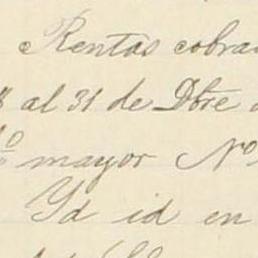 Rentas cobra
8 al 31 de Dbre
mayor No
Yd id en